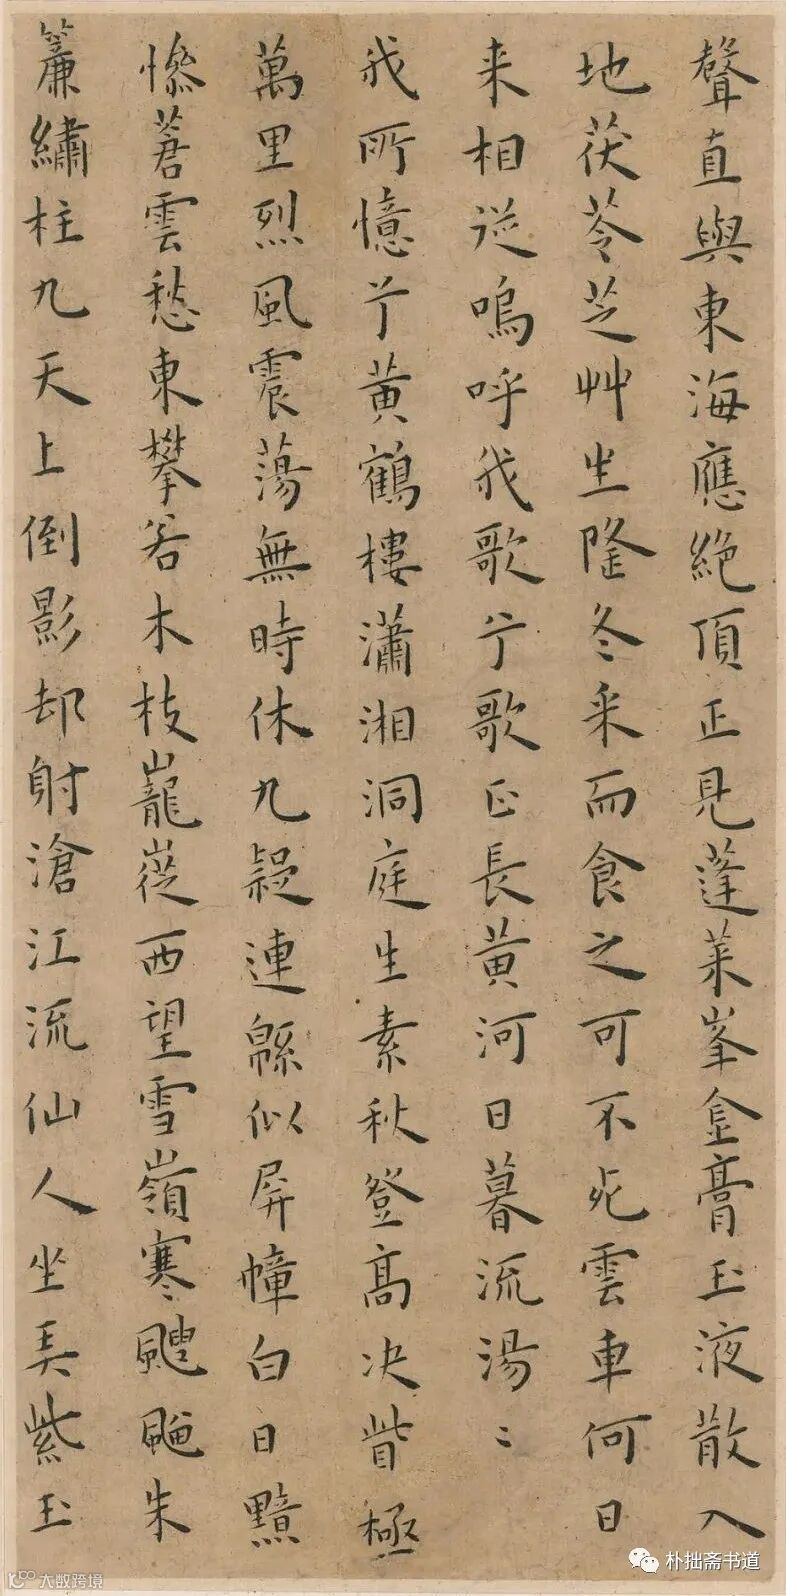 聲直與東海應絶頂正見蓬萊峯金膏玉液散入
地茯苓芝艸生隆冬采而食之可不死雲車何日
来相從嗚呼我歌兮歌正長黃河日暮流湯〻
我所憶兮黃鶴樓瀟湘洞庭生素秋登高決眥極
萬里烈風震蕩無時休九疑連緜似屏幛白日黯
慘蒼雲愁東攀若木枝巃嵸西望雪嶺寒颼颼朱
簾繡柱九天上倒影却射滄江流仙人坐弄紫玉
朴拙斋书道
大数跨境